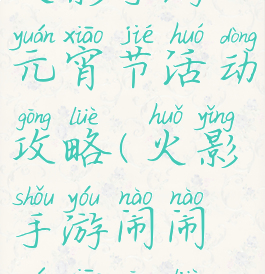 yuán xiāo jié huó dòng
元宵节活动
gōng lüè huǒ yǐng
攻略(火影
shǒu yóu nào nào
手游闹闹